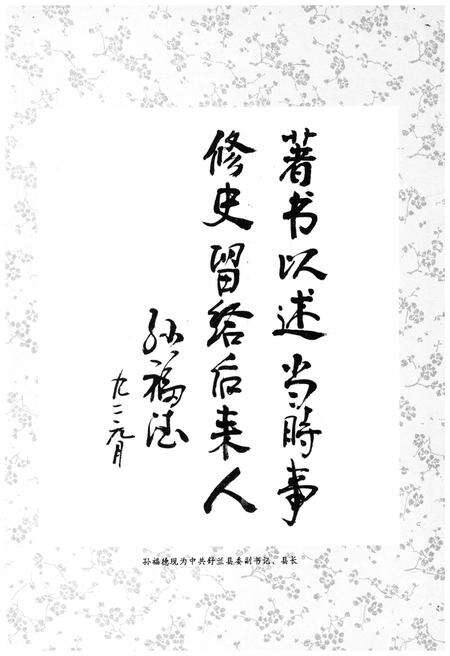 著书以述当時事
修史留给后来人
孙福德
九二元月
孙福德现为中共舒兰县委副书记、县长